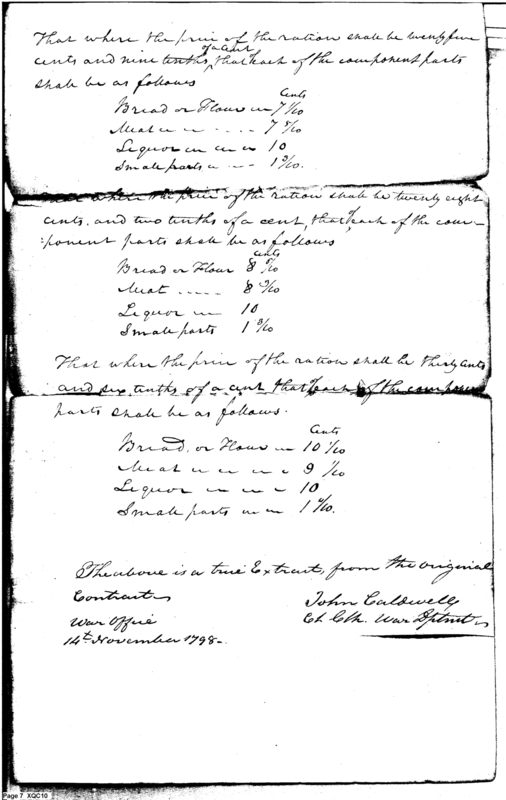 That where the price of the ration shall be twenty five
cents and nine tenths of a cent, that of each of the component parts
shall be as follows
Cents
Bread or Flour 7
Meat 7
Liquor 10
Small parts 1
where the price of the ration shall be twenty eight
cents. and two tenths of a cent, that of each of the com-
:ponent parts shall be as follows
Cents
Bread or Flour 8
Meat 8
Liquor 10
Small parts 1
That where the price of the ration shall be thirty cents
and six tenths of a cent that of each of the component
parts shall be as follows.
Cents
Bread. or Flour 10
Meat 9
Liquor 10
Small parts 1
The above is a true Extract, from the original
Contract
John Caldwell
War Office
Ch. Clk. War Dptmt
14th November 1798.
Page 7 XQC10